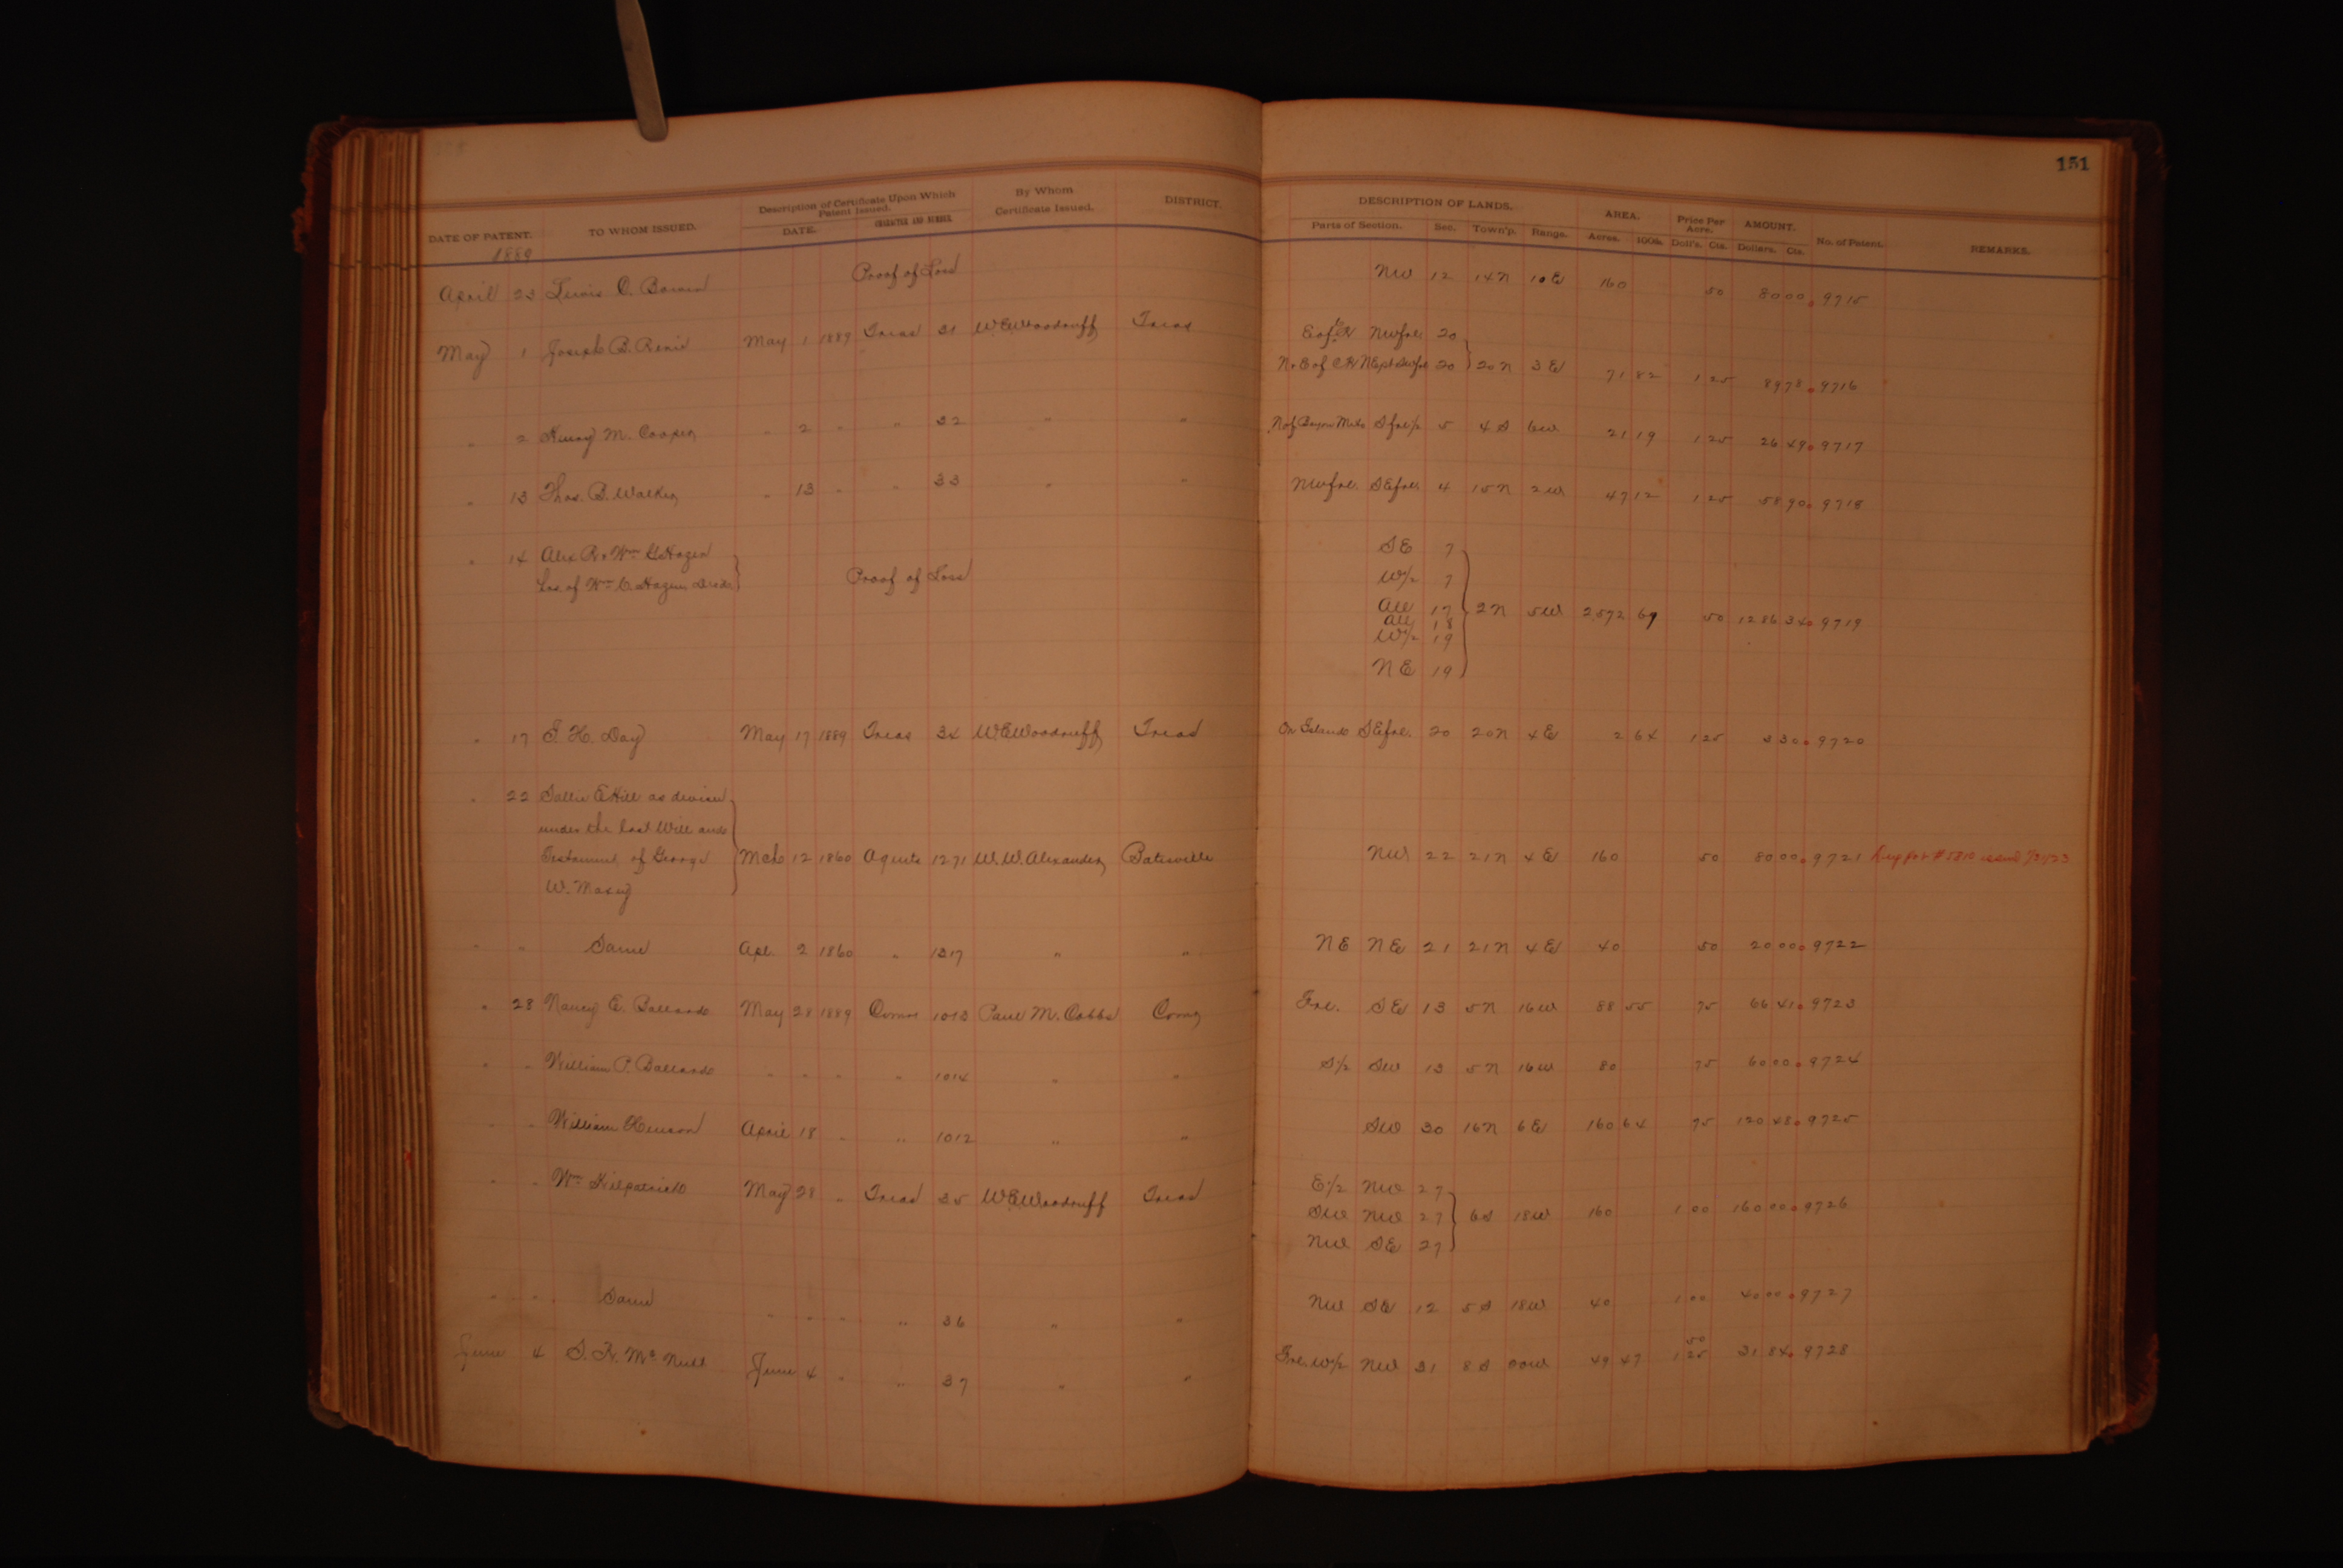 151
DATE OF PATENT. TO WHOM ISSUED. Description of Certificate Upon Which Patent Issued. DATE. CHARACTER AND NUMBER By Whom Certificate Issued. DISTRICT. DESCRIPTION OF LANDS. Parts of Section. Sec. Town'p. Range. AREA. Acres. 100s. Price Per Acre. Doll's. Cts. AMOUNT. Dollars. Cts. No. of Patent. REMARKS.
1889
April 23 Lewis O. Bowen Proof of Loss NW 12 14N 10E 160 50 80 00 9715
May 1 Joseph B. May 1 1889 Treas 31 W.E. Woodruff Treas E of NW frl. 20
N & E of 20 } 20N 3E 71 82 1 25 89 78 9716
" 2 M. Cooper " 2 " " 32 " " N of Bayou Meto S frl 1/2 5 4S 6W 21 19 1 25 26 49 9717
" 13 Thos. B. Walker " 13 " " 33 " " NW frl. SE frl. 4 15N 2W 47 12 1 25 58 90 9718
" 14 Alex R. & Wm G. Hazen SE 7
of Wm C. Hazen } Proof of Loss W/2 7
All 17 } 2N 5W 2572 69 50 1286 34 9719
All 18
W/2 19
NE 19
" 17 J. H. Day May 17 1889 Treas 34 W.E. Woodruff Treas On Island SE frl. 20 20N 4E 2 64 1 25 3 30 9720
" 22 Sallie E. Hill as devisee
under the last Will and
Testament of George } Mch 12 1860 Agents 1271 W.W. Alexander Batesville NW 22 21N 4E 160 50 80 00 9721 issued
W. Maxey
" " Same Apl. 2 1860 " 1317 " " NE NE 21 21N 4E 40 50 20 00 9722
" 28 Nancy E. Ballard May 28 1889 Comr 1013 Paul M. Cobbs Comr Frl. SE 13 5N 16W 88 55 75 66 41 9723
" " William P. Ballard " " " " 1014 " " S/2 SW 13 5N 16W 80 75 60 00 9724
" " William Henson April 18 " " 1012 " " SW 30 16N 6E 160 64 75 120 48 9725
" " Wm Kilpatrick May 28 " Treas 35 W.E. Woodruff Treas E/2 NW 27
SW NW 27 } 6S 18W 160 1 00 160 00 9726
NW SE 27
" " " Same " " " " 36 " " NW SE 12 5S 18W 40 1 00 40 00 9727
June 4 Mc June 4 " " 37 " " Frl. W/2 NW 31 8S 49 47 50 1 25 31 84 9728